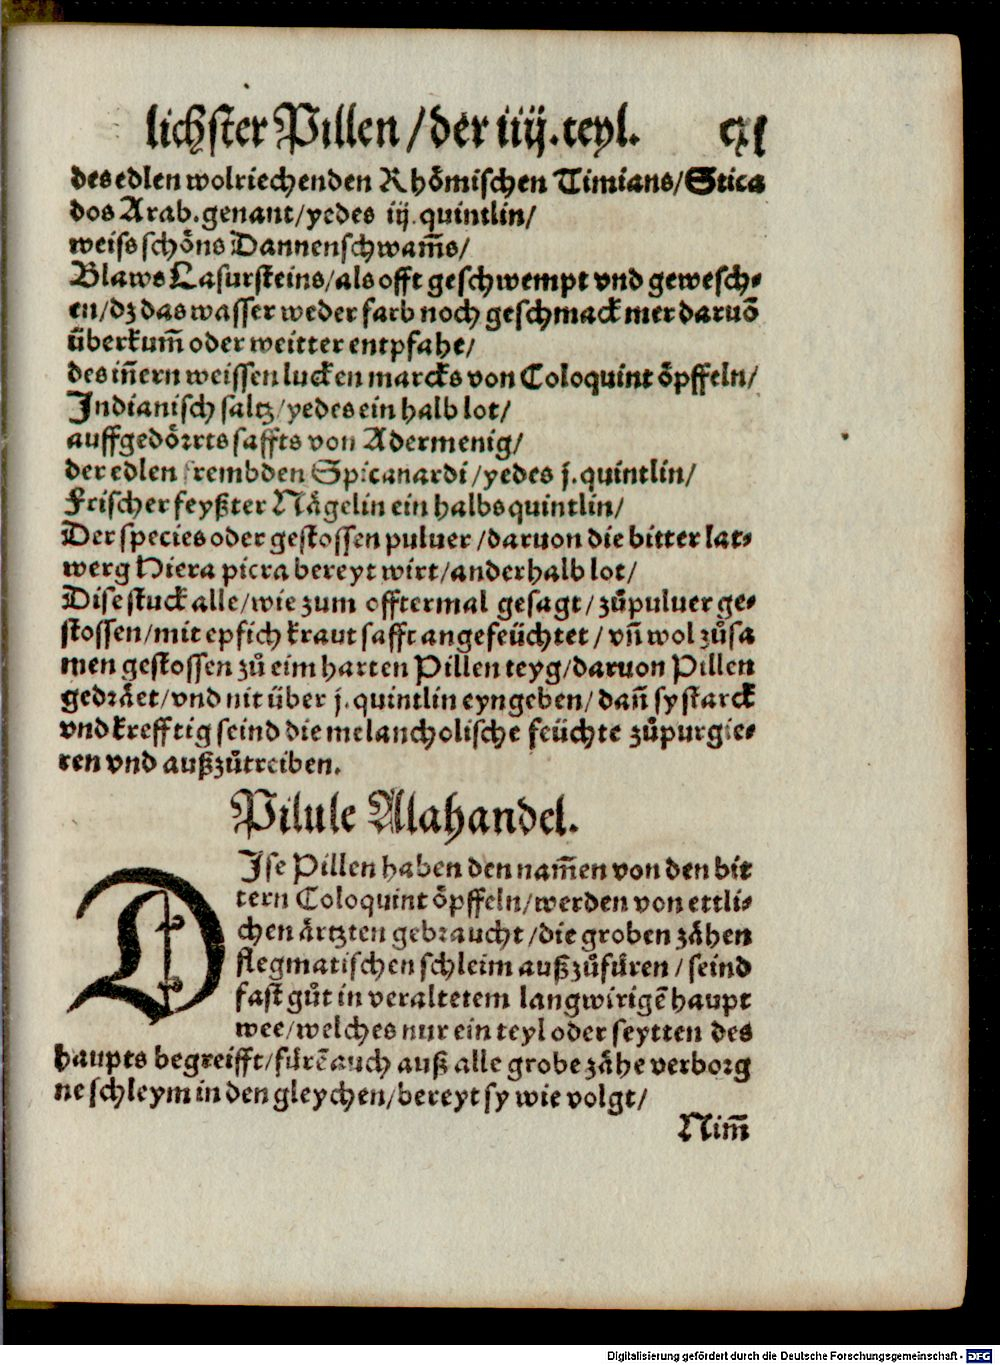 lichster Pillen / der iiij. teyl. cxj
des edlen wolriechenden Rhömischen Timians/ Stica
dos Arab. genant/ yedes iij. quintlin/
weiss schöns Dannenschwam̃s/
Blaws Lasursteins/ als offt geschwempt vnd gewesch⸗
en/ dz das wasser weder farb noch geschmack mer daruõ
überkum̃ oder weitter entpfahe/
des iñern weissen lucken marcks von Coloquint öpffeln/
Indianisch saltz/ yedes ein halb lot/
auffgedörrts saffts von Adermenig/
der edlen frembden Spicanardi/ yedes j. quintlin/
Frischer feyßter Nägelin ein halbs quintlin/
Der species oder gestossen puluer / daruon die bitter lat⸗
werg Hiera picra bereyt wirt/ anderhalb lot/
Dise stuck alle/ wie zum offtermal gesagt / zůpuluer ge⸗
stossen/ mit epfich kraut safft angefeüchtet / vñ wol zůsa
men gestossen zů eim harten Pillen teyg/ daruon Pillen
gedräet/ vnd nit über j. quintlin eyngeben/ dañ sy starck
vnd krefftig seind die melancholische feüchte zůpurgie⸗
ren vnd außzůtreiben.
Pilule Alahandel.
DIse Pillen haben den nam̃en von den bit
tern Coloquint öpffeln/ werden von ettli⸗
chen ärtzten gebraucht / die groben zähen
flegmatischen schleim außzůfüren / seind
fast gůt in veraltetem langwirigẽ haupt
wee/ welches nur ein teyl oder seytten des
haupts begreifft/ fürẽ auch auß alle grobe zähe verborg
ne schleym in den gleychen/ bereyt sy wie volgt/
Nim̃
Digitalisierung gefördert durch die Deutsche Forschungsgemeinschaft - DFG